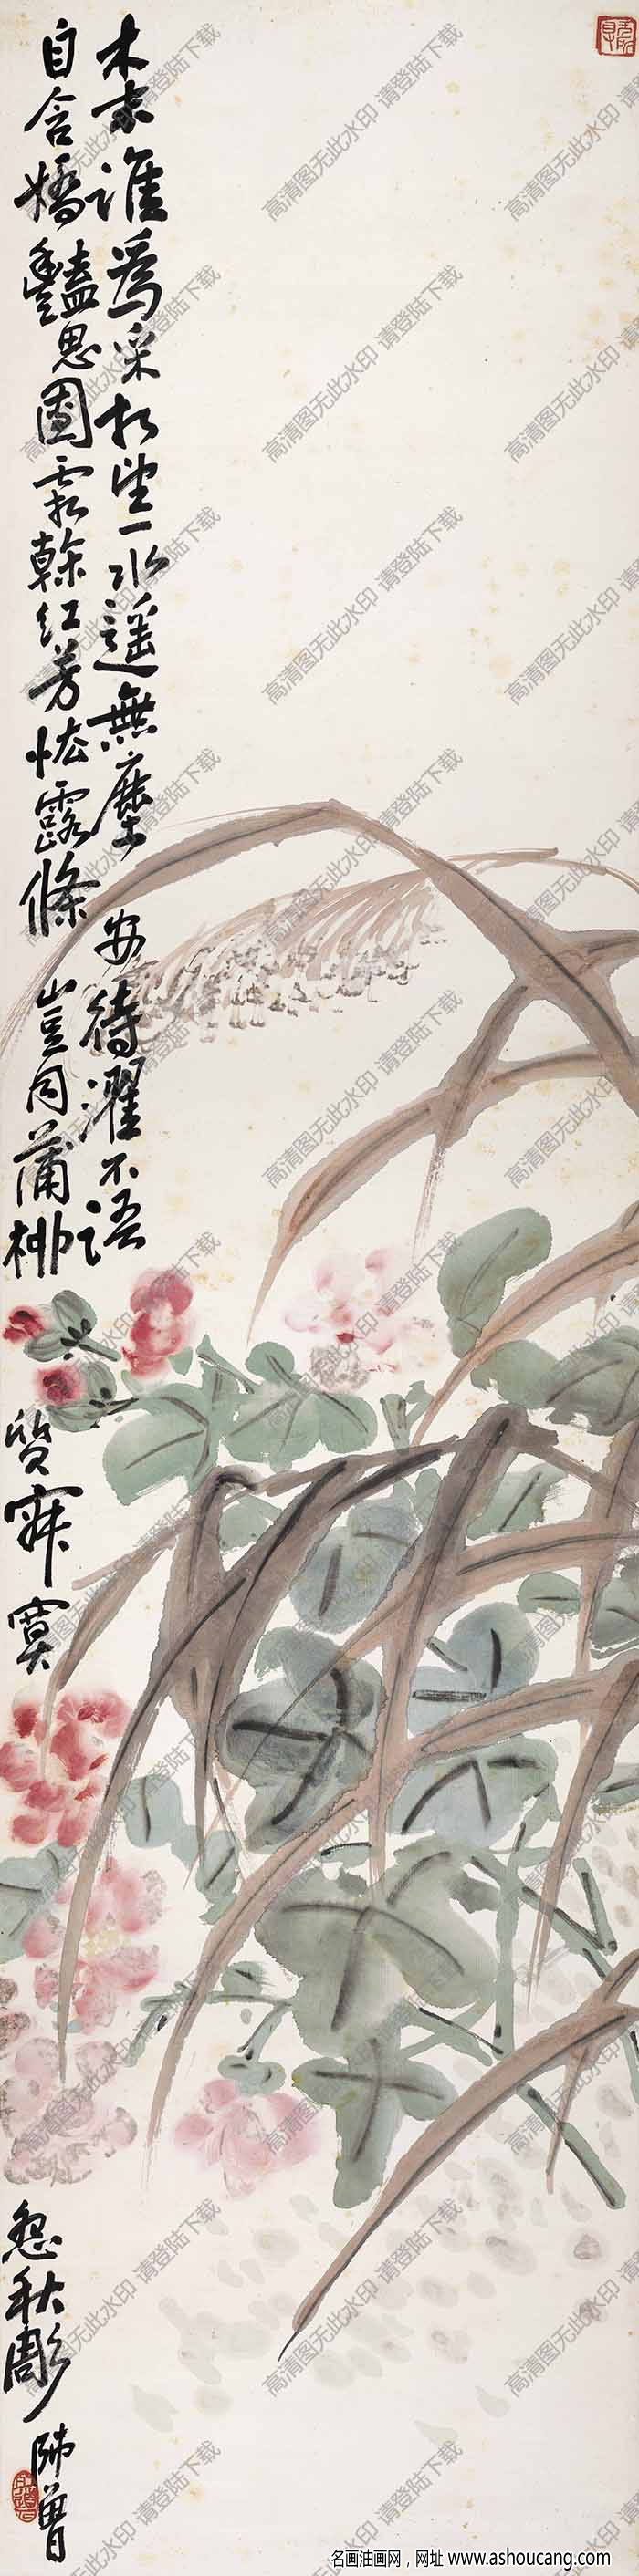 木末誰為采相望一水遥無塵安待濯不語
自含嬌豔思霜幹紅芳怯露條豈同蒲柳質寂寞怨秋彫
師曾
高清图无此水印 请登陆下载
名画油画网，网址 www.ashoucang.com